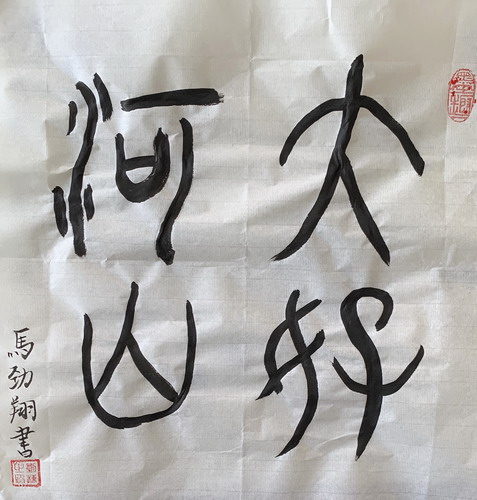 大好
河山
馬勁翔書